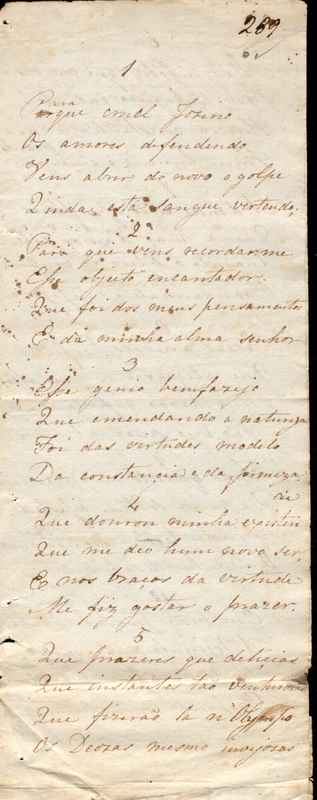 269
1
Porque cruel Jozino
Os amores defendendo
Vens abrir do novo o golpe
Qinda está sangue vertendo,
2
Para que vens recordarme
Esse objecto encantador.
Que foi dos meus pensamentos
E da minha alma senhor
3
Esse genio bemfazejo
Que emendando a natureza
Foi das virtudes modelo
Da constancia e da firmeza
4
Que dourou minha existencia
Que me deo hum novo ser,
E nos braços da virtude
Me fez gostar o prazer.
5
Que prazeres que delicias
Que instantes tão venturosos
Que fizerão la n'Olympo
Os Deozas mesmo invejozas